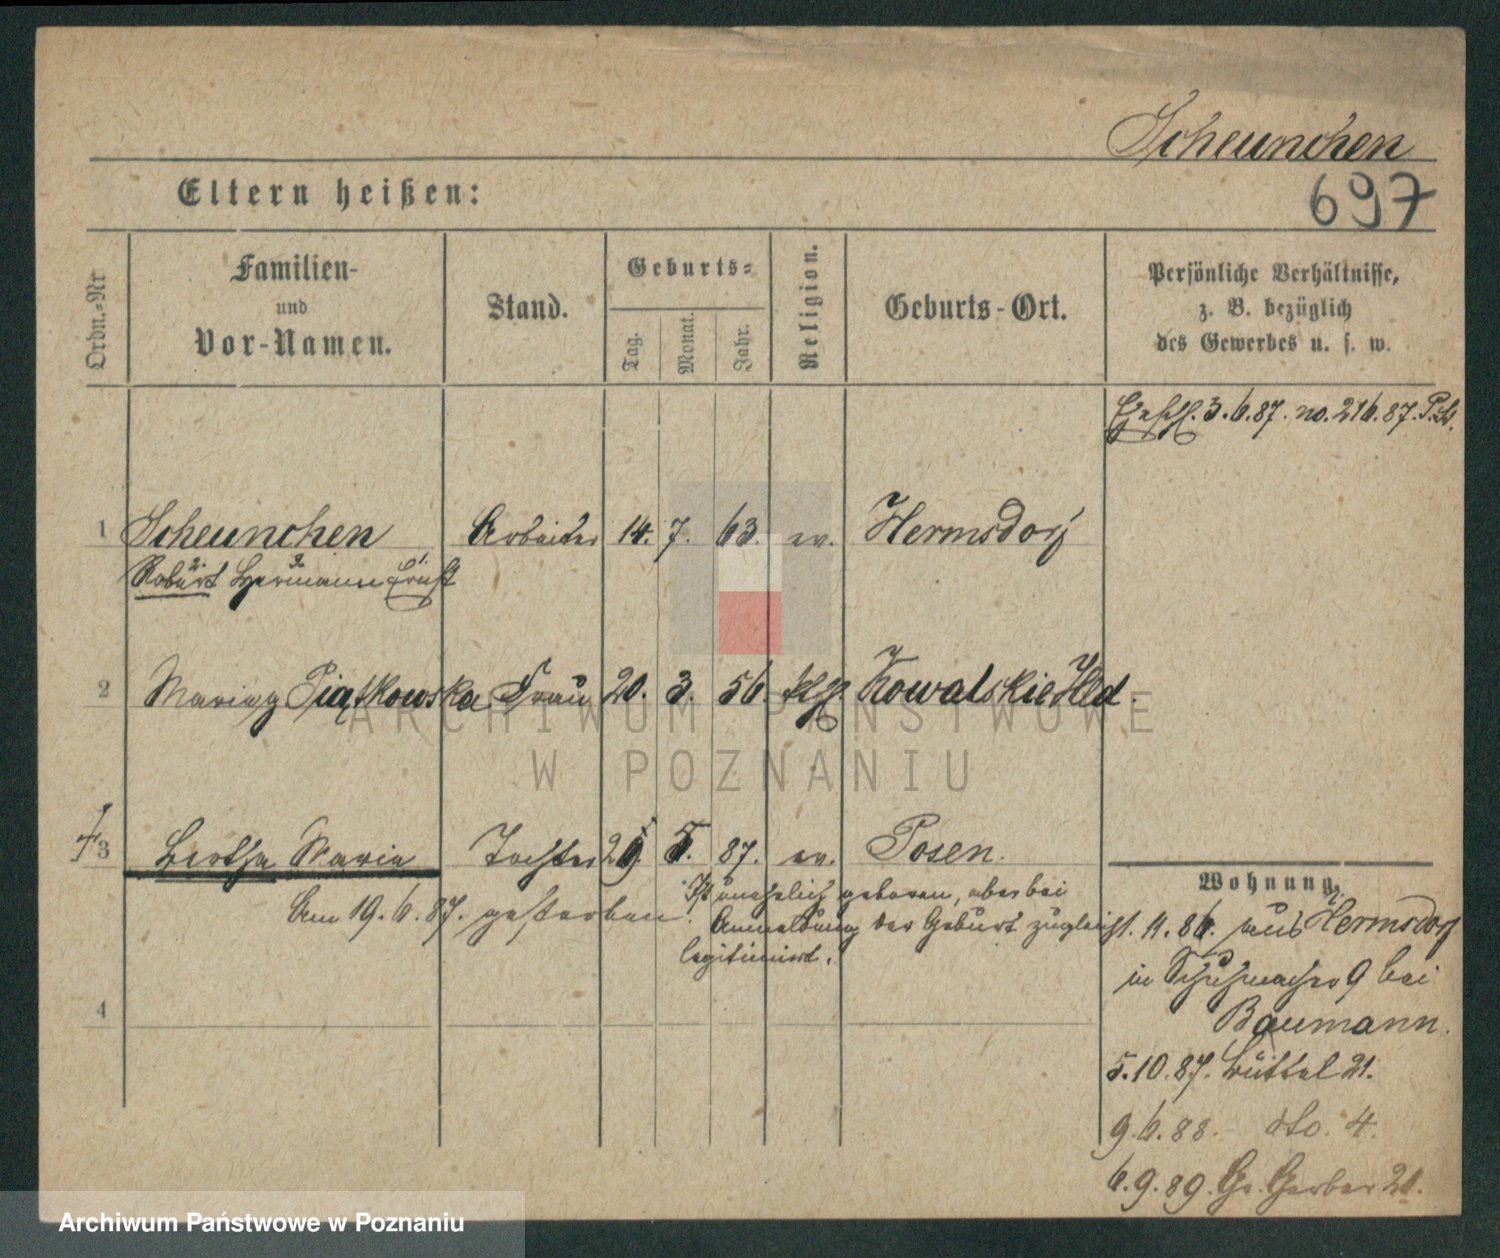 Scheunchen
Eltern heißen:
697
Ordn.-Nr
Familien-
und
Vor-Namen.
Stand.
Geburts-
Tag.
Monat.
Jahr.
Religion.
Geburts-Ort.
Persönliche Verhältnisse,
z. B. bezüglich
des Gewerbes u. s. w.
3.6.87. no. 216.87.
1 Scheunchen Arbeiter 14. 7. 63. ev. Hermsdorf
Robert Hermann Ernst
2 Maria Piątkowska Frau 20. 3. 56. Kowalskie Hld.
3 Bertha Maria Tochter 29. 5. 87. ev. Posen.
Am 19.6.87. gestorben.
Ist unehelich geboren, aber bei
Anmeldung der Geburt zugleich
legitimirt.
4
Wohnung.
1. 11. 86. aus Hermsdorf
in Schuhmacher 9 bei
Baumann.
5.10.87. Büttel 21.
9.6.88. dto. 4.
6.9.89. Gr. Gerber 21.
ARCHIWUM PAŃSTWOWE
W POZNANIU
Archiwum Państwowe w Poznaniu